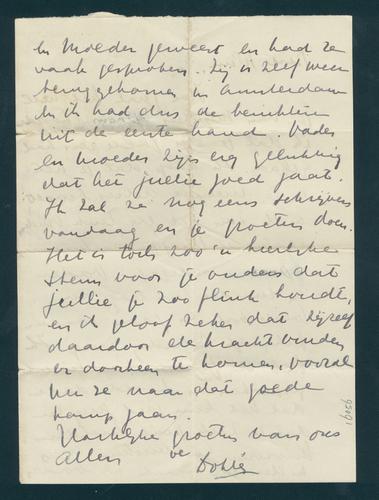 en Moeder geweest en had ze
vaak gesproken. Zij is zelf weer
teruggekomen in Amsterdam
en ik had dus de berichten
uit de eerste hand. Vader
en Moeder zijn erg gelukkig
dat het jullie goed gaat.
Ik zal ze nog eens schrijven
vandaag en je groeten doen.
Het is toch zoo'n heerlijke
steun voor je ouders dat
jullie je zoo flink houdt,
en ik geloof zeker dat zij zelf
daardoor de kracht vinden
er doorheen te komen, vooral
nu ze naar dat goede
kamp gaan.
Hartelijke groeten van ons
allen
95691